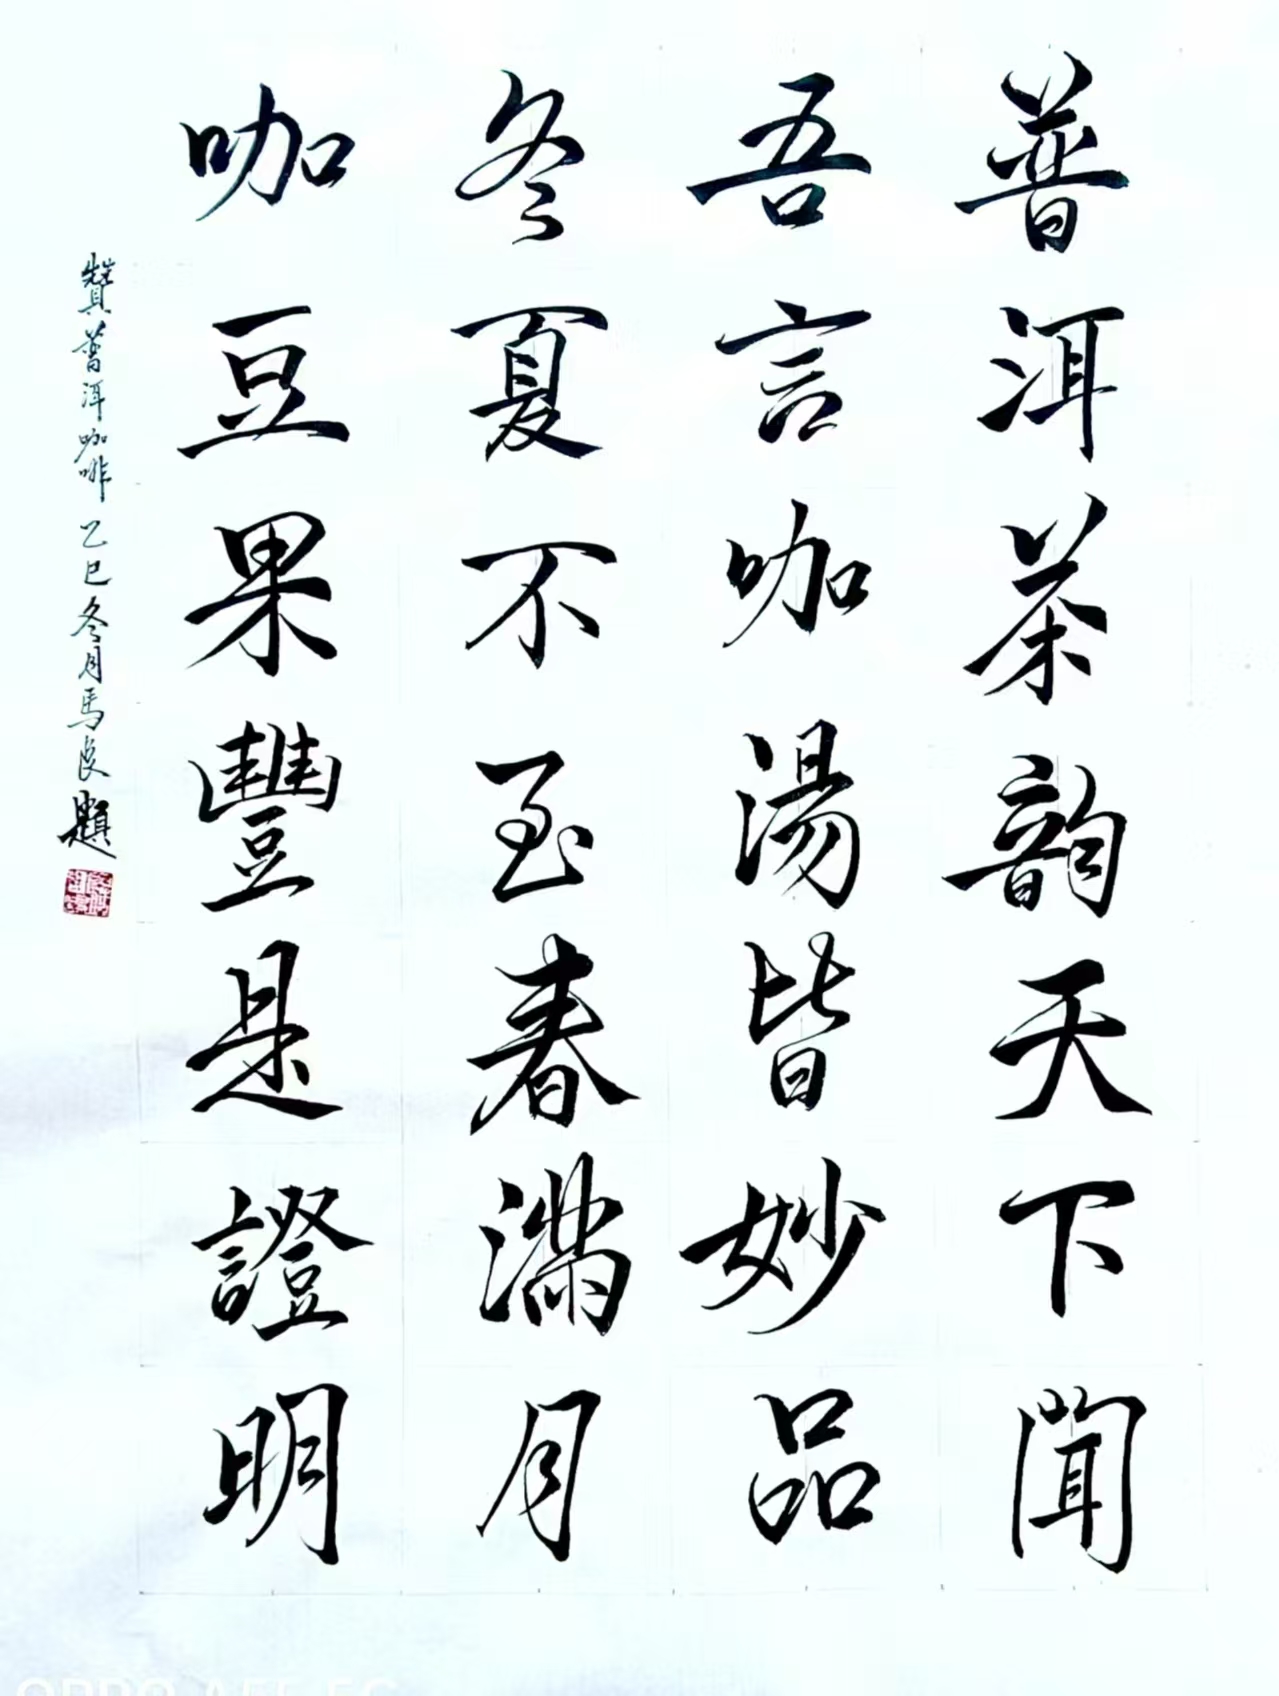 普洱茶韵天下聞
吾言咖湯皆妙品
冬夏不至春滿月
咖豆果豐是證明
贊普洱咖啡乙巳冬月馬良題